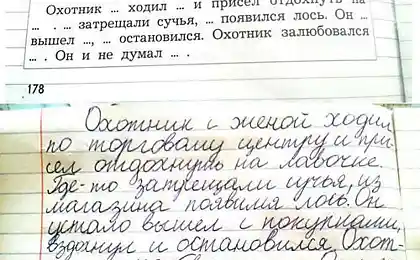 Охотник ... ходил ... и присел отдохнуть на
... . ... затрещали сучья, ... появился лось. Он ...
вышел ..., ... остановился. Охотник залюбовался
... . Он и не думал ... .
178
Охотник с женой ходил
по торговому центру и при-
сел отдохнуть на лавочке.
Где-то затрещали сучья, из
магазина появился лось. Он
устало вышел с покупками,
вздохнул и остановился. Охот-